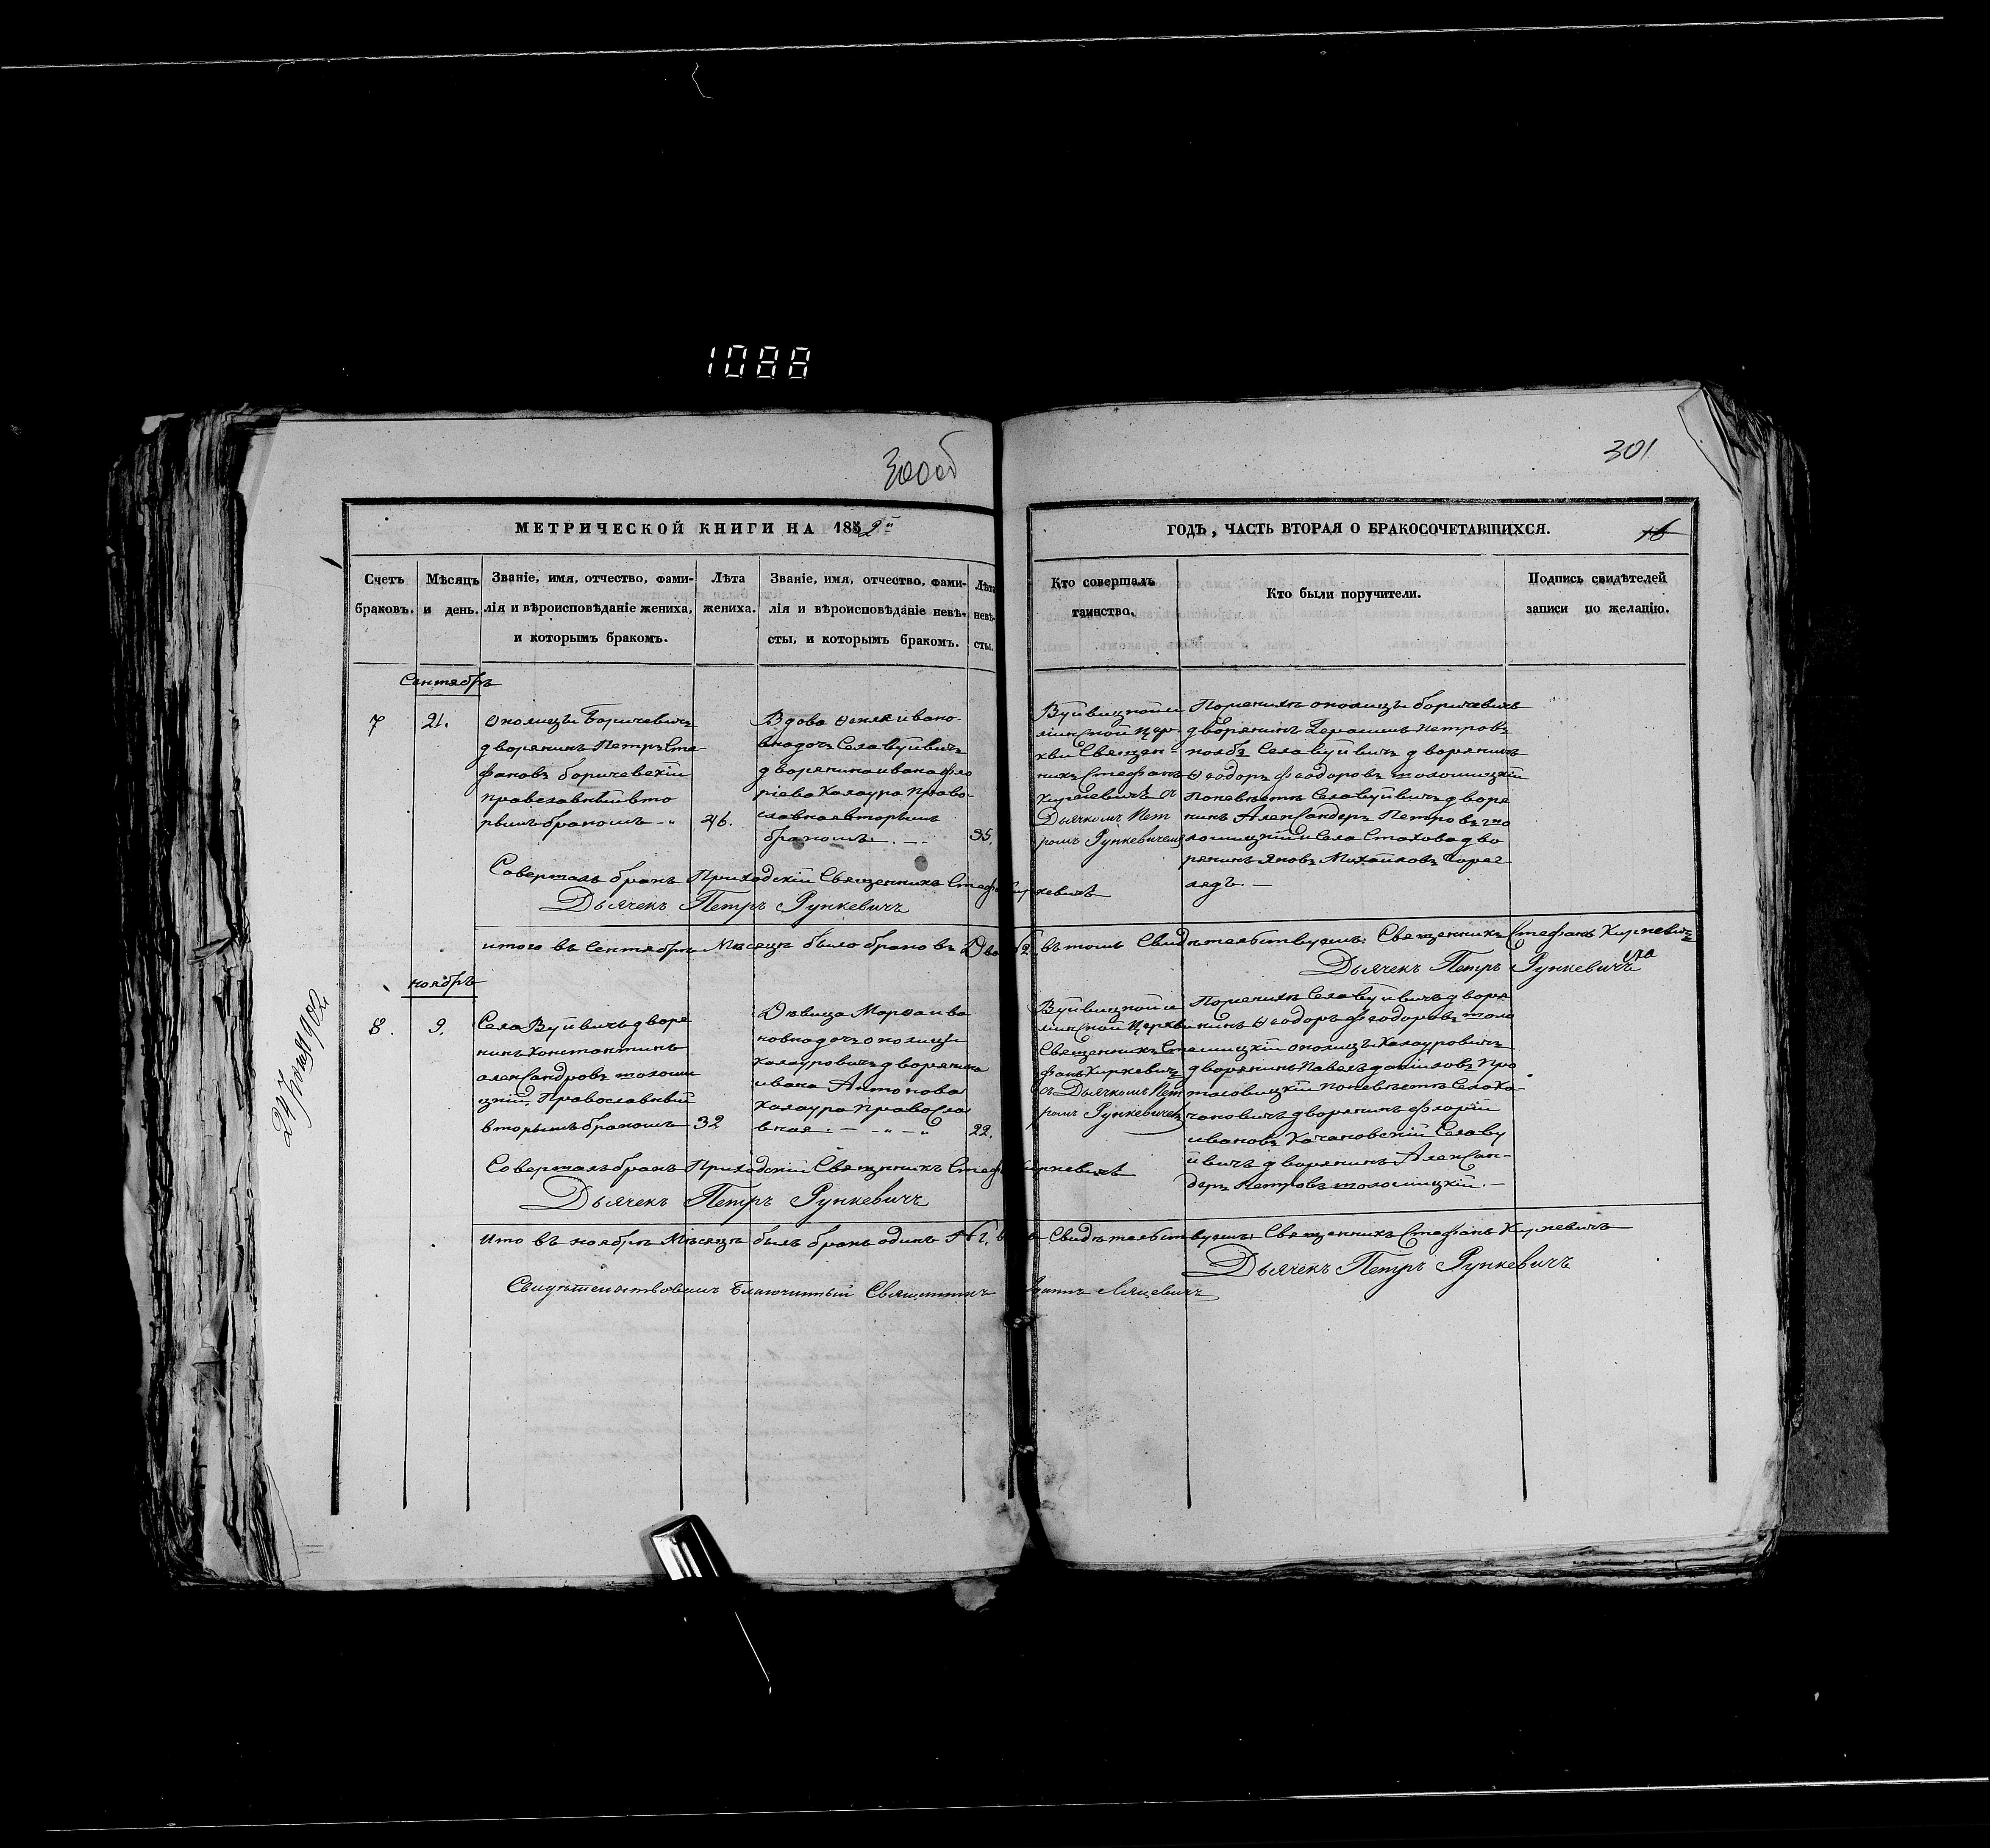 1088
300об
301
МЕТРИЧЕСКОЙ КНИГИ НА 1852й
ГОДЪ, ЧАСТЬ ВТОРАЯ О БРАКОСОЧЕТАВШИХСЯ.
16
Счетъ
браковъ.
Мѣсяцъ
и день.
Званіе, имя, отчество, фами-
лія и вѣроисповѣданіе жениха,
и которымъ бракомъ.
Лѣта
жениха.
Званіе, имя, отчество, фами-
лія и вѣроисповѣданіе невѣ-
сты, и которымъ бракомъ.
Лѣта
невѣ-
сты.
Кто совершалъ
таинство.
Кто были поручители.
Подпись свидѣтелей
записи по желанію.
Сентябрь
7
21.
Околицы Боричевичъ
дворянинъ Петръ Сте
фановъ боричевскій
православный вто
рымъ бракомъ
26.
Вдова Ѳекла ивано-
вна дочь Села вуйвичъ
дворянина ивана фло
ріева Калаура право-
славная вторымъ
бракомъ.
35.
Вуйвицкой и
линской цер-
кви Священ-
никъ Стефанъ
Киркевичъ с
Дьячкомъ Пет
ромъ Рункевичемъ
По женихѣ околицы боричевичъ
дворянинъ Герасимъ Петровъ
Села вуйвичъ дворянинъ
Ѳеодоръ Феодоровъ толочицкій
По невѣстѣ Села вуйвичъ дворя
нинъ Александеръ Петровъ то
лочицкій и Села Стахова дво
рянинъ Яковъ Михайловъ
лядъ.
Совершалъ бракъ Приходскій Священникъ Стеф Киркевичъ
Дьячекъ Петръ Рункевичъ
итого въ Сентябрѣ Мѣсяцѣ было браковъ Два №2. въ томъ Свидѣтельствуемъ: Священникъ Стефанъ Киркевичъ
Дьячекъ Петръ Рункевичъ
ноябрь
8.
9.
Села Вуйвичъ дворя
нинъ Константинъ
александровъ толочи
цкій, Православный
вторымъ бракомъ
32
Дѣвица Марѳа ива
новна дочь околицы
Калауровичъ дворянина
ивана Антонова
Калаура Правосла
вная.
22.
Вуйвицкой и
линской Церкви
Священникъ Сте
фанъ Киркевичъ
съ Дьячкомъ Пет
ромъ Рункевичемъ
По женихѣ Села Вуйвичъ дворя
нинъ Ѳеодоръ Феодоровъ толо
чицкій околицы Калауровичъ
дворянинъ Павелъ даниловъ Про
таговицкій По невѣстѣ Села Ка-
чановичъ дворянинъ Флорій
ивановъ Качановскій Села ву
йвичъ дворянинъ Алексан-
деръ Петровъ толочицкій.
Совершалъ бракъ Приходскій Священникъ Стеф Киркевичъ
Дьячекъ Петръ Рункевичъ
Ито въ ноябрѣ Мѣсяцѣ былъ бракъ одинъ №1. въ Свидѣтельствуемъ: Священникъ Стефанъ Киркевичъ
Дьячекъ Петръ Рункевичъ
Свидѣтельствовалъ Благочинный Священникъ Іоаннъ Лицевичъ
1902